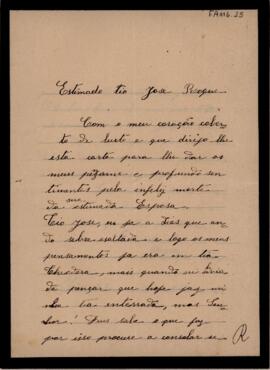 FAM6.25
Estimado tio Jose Roque
Com o meu coração cober-
to de lucto e que dirijo lhe
esta carta para lhe dar os
meus pezames e profundo sen-
timentos pela infeliz morte
da sua estimada Esposa.
Tio Jose, eu ja a dias que an-
do sobre e logo os meus
pensamentos ja era em tia
mais quando eu
de pensar que hoje faz mi-
nha tia enterrada, mas Se-
nhor! Deus sabe o que faz
por isso procure a consolar se
R